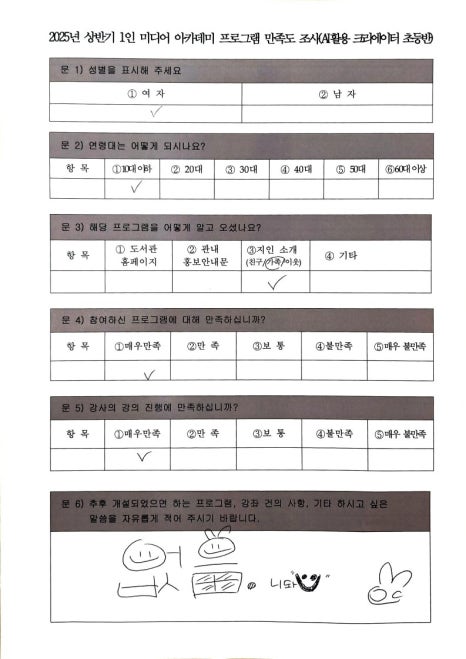 2025년 상반기 1인 미디어 아카데미 프로그램 만족도 조사(AI활용 크리에이터 초등반)
문 1) 성별을 표시해 주세요
① 여 자 ② 남 자
문 2) 연령대는 어떻게 되시나요?
항 목 ①10대 이하 ② 20대 ③ 30대 ④ 40대 ⑤ 50대 ⑥60대 이상
문 3) 해당 프로그램을 어떻게 알고 오셨나요?
항 목 ① 도서관 홈페이지 ② 관내 홍보안내문 ③지인 소개 (친구/가족/이웃) ④ 기타
문 4) 참여하신 프로그램에 대해 만족하십니까?
항 목 ①매우만족 ②만 족 ③보 통 ④불만족 ⑤매우 불만족
문 5) 강사의 강의 진행에 만족하십니까?
항 목 ①매우만족 ②만 족 ③보 통 ④불만족 ⑤매우 불만족
문 6) 추후 개설되었으면 하는 프로그램, 강좌 건의 사항, 기타 하시고 싶은
말씀을 자유롭게 적어 주시기 바랍니다.